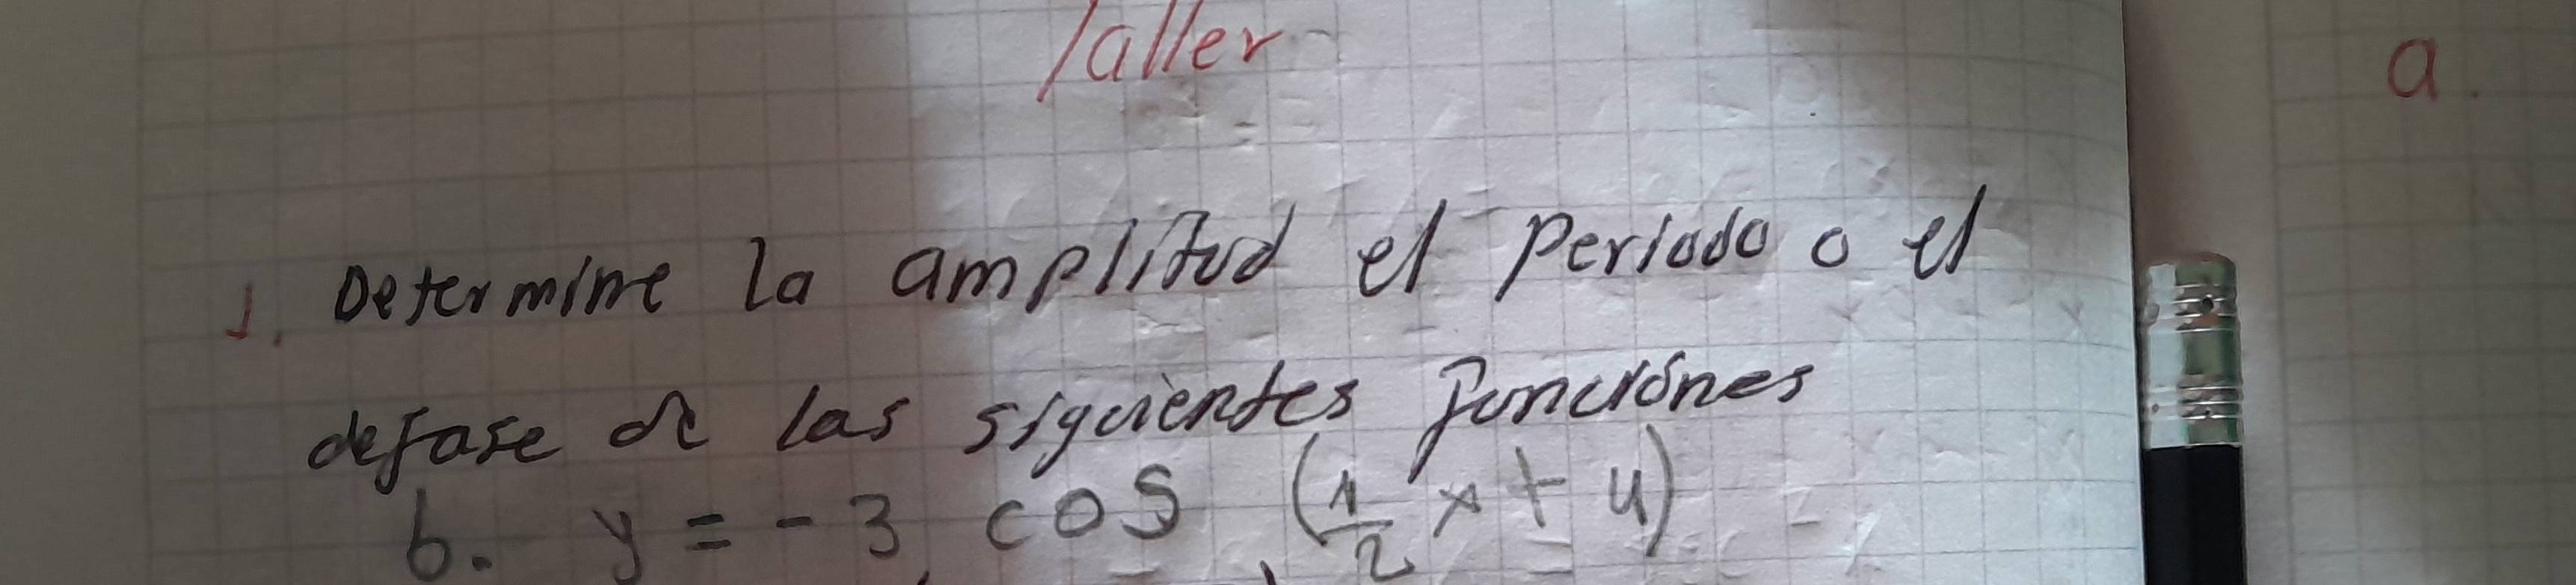 Taller
a.
1. Determine la amplitud el periodo o el
defase de las siguientes funciónes
b. y = -3 cos (1/2 x + 4)